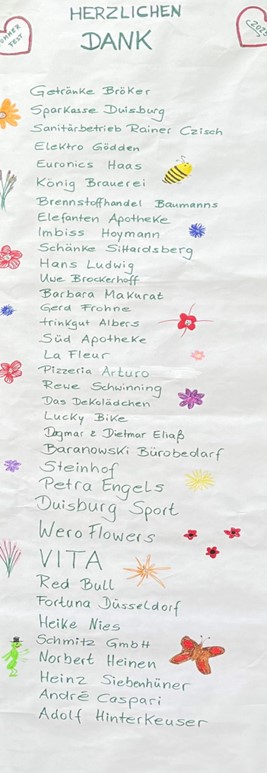 HERZLICHEN
DANK
SOMMER
FEST
2025
Getränke Bröker
Sparkasse Duisburg
Sanitärbetrieb Rainer Czisch
Elektro Gödden
Euronics Haas
König Brauerei
Brennstoffhandel Baumanns
Elefanten Apotheke
Imbiss Hoymann
Schänke Sittardsberg
Hans Ludwig
Uwe Brockerhoff
Barbara Makurat
Gerd Frohne
trinkgut Albers
Süd Apotheke
La Fleur
Pizzeria Arturo
Rewe Schwinning
Das Dekolädchen
Lucky Bike
Dagmar & Dietmar Eliaß
Baranowski Bürobedarf
Steinhof
Petra Engels
Duisburg Sport
Wero Flowers
VITA
Red Bull
Fortuna Düsseldorf
Heike Nies
Schmitz GmbH
Norbert Heinen
Heinz Siebenhüner
André Caspari
Adolf Hinterkeuser